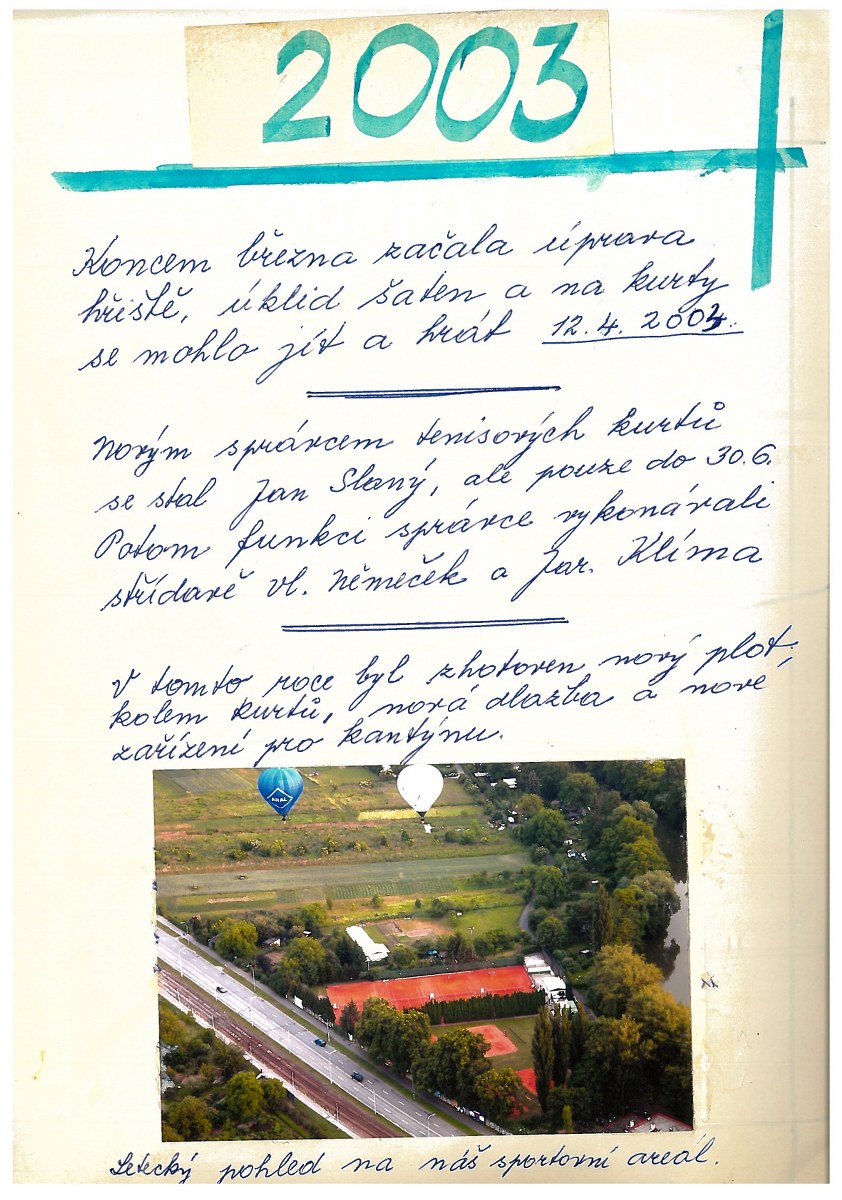 2003
Koncem března začala úprava
hřiště, úklid šaten a na kurty
se mohlo jít a hrát 12.4. 2003.
Novým správcem tenisových kurtů
se stal Jan Slaný, ale pouze do 30.6.
Potom funkci správce vykonávali
střídavě vl. Němeček a Jar. Klíma
V tomto roce byl zhotoven nový plot
kolem kurtů, nová dlažba a nové
zařízení pro kantýnu.
ARAL
Letecký pohled na náš sportovní areál.